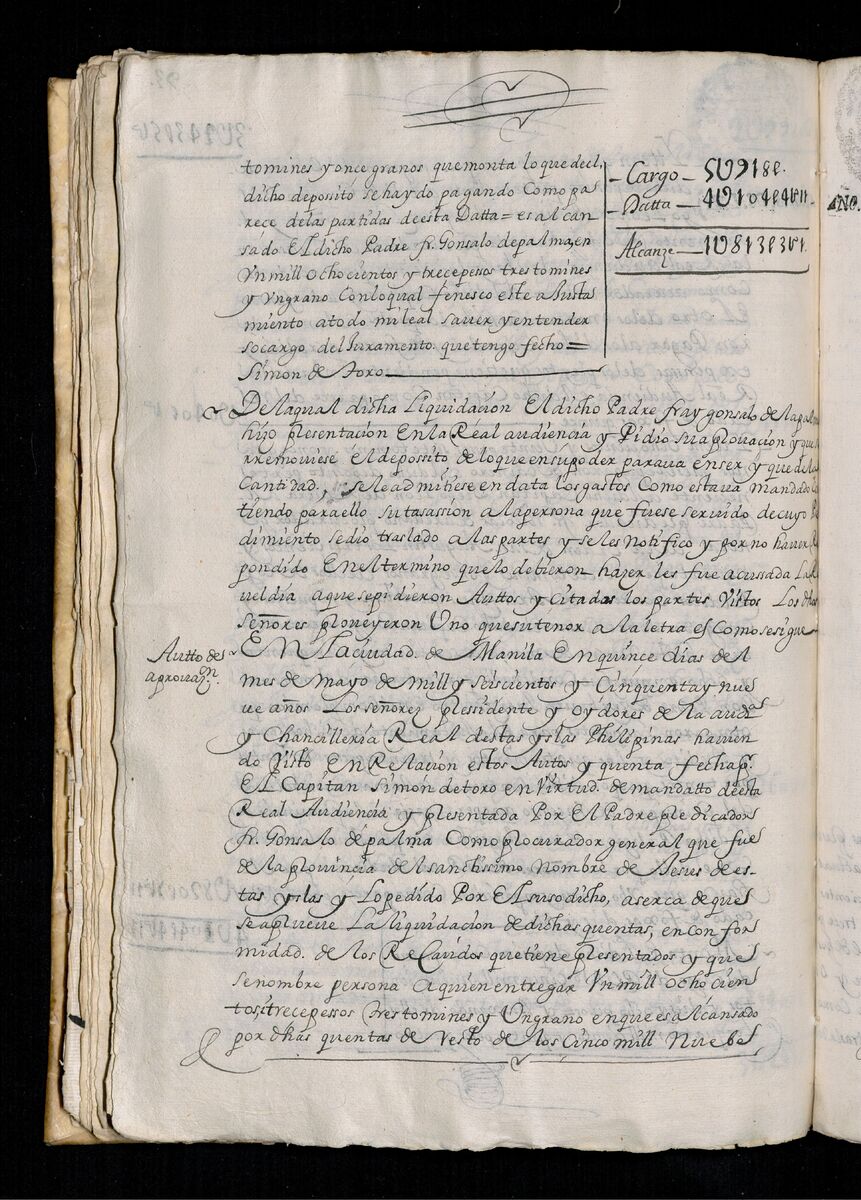 tomines y once granos que monta lo que de el
dicho deposito se ha ydo pagando Como pa
rece de las partidas de esta Datta = es alcan
sado El dicho Padre fr. Gonsalo de palma, en
Vn mill ochocientos y trece pesos tres tomines
y Vn grano Con lo qual fenesco este aJusta
miento a todo mi leal saver y entender
so cargo del Juramento que tengo fecho =
Simon de Toro
- Cargo - 5U918p.
- Datta - 4U104p4t11
Alcanze - 1U813p3t1.
De la qual dicha Liquidacion El dicho Padre fray gonsalo de la palma
hizo presentacion En la Real audiencia y Pidio su aprouacion y que
rremouiese el deposito de lo que en su poder paraua en ser y que de la
Cantidad, se le admitiese en data los gastos Como estaua mandado
tiendo para ello su tasassion a la persona que fuese seruido de cuyo
dimiento se dio traslado a las partes y se les Notifico y por no hauer
pondido En el termino que lo deuieron hazer les fue acussada La
ueldia a que se pidieron Auttos y Citadas las partes Vistos Los dhos
Señores proueyeron Uno que su tenor a la letra es como se sigue
Autto de
aprouazon.
EN La ciudad de Manila En quince dias del
mes de Mayo de mill y Seiscientos y Cinquenta y nue
ue años Los señores Pressidente y oydores de la audia
y Chancilleria Real destas yslas Philipinas hauien
do Visto En Relacion estos Autos y quenta fecha pr.
El Capitan Simon de toro en Virtud de mandatto de esta
Real Audiencia y presentada Por El Padre predicador
fr. Gonsalo de palma Como procurador general que fue
de la prouincia del sanctissimo Nombre de Jesus de es-
tas yslas y Lo pedido Por El suso dicho, aserca de que
se aprueue La liquidacion de dichas quentas, en confor
midad de los Recaudos que tiene presentados y que
se nombre persona a quien entregar Vn mill ochocien
tos i trece pessos tres tomines y Un grano en que es alcansado
por dhas quentas de resto de los Cinco mill Nuebe